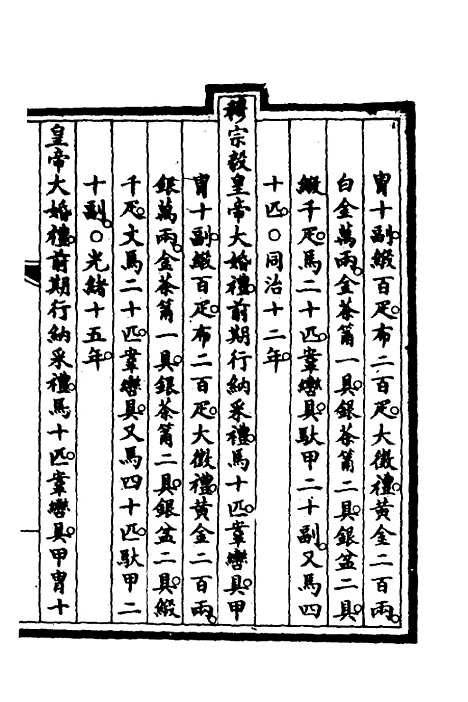 冑十副。緞百疋。布二百疋。大徵禮。黃金二百兩。
白金萬兩。金茶筩一具。銀茶筩二具。銀盆二具。
緞千疋。馬二十匹。鞌轡具。馱甲二十副。又馬四
十匹。○同治十二年。
穆宗毅皇帝大婚禮。前期行納采禮。馬十匹。鞌轡具。甲
冑十副。緞百疋。布二百疋。大徵禮。黃金二百兩。
銀萬兩。金茶筩一具。銀茶筩二具。銀盆二具。緞
千疋。文馬二十匹。鞌轡具。又馬四十匹。馱甲二
十副。○光緒十五年。
皇帝大婚禮。前期行納采禮。馬十匹。鞌轡具。甲冑十